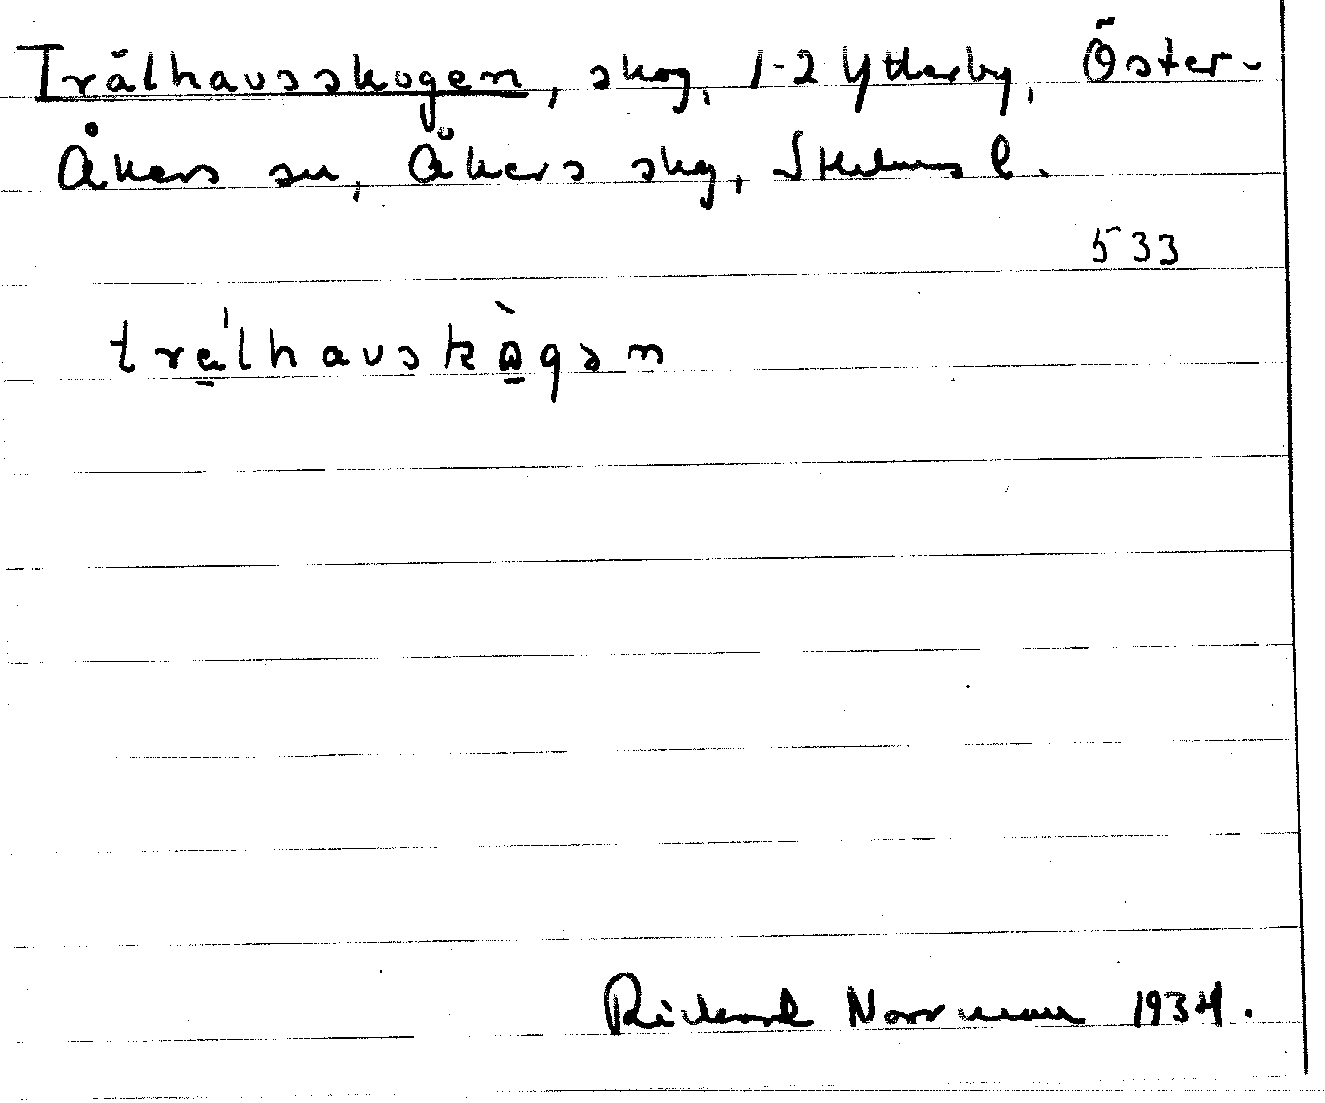 Trålhavsskogen, skog, 1-2 Ytterby, Öster-
Åkers sn, Åkers skg, Sthlms l.
533
trålhavskògən
Rickard Norrman 1934.